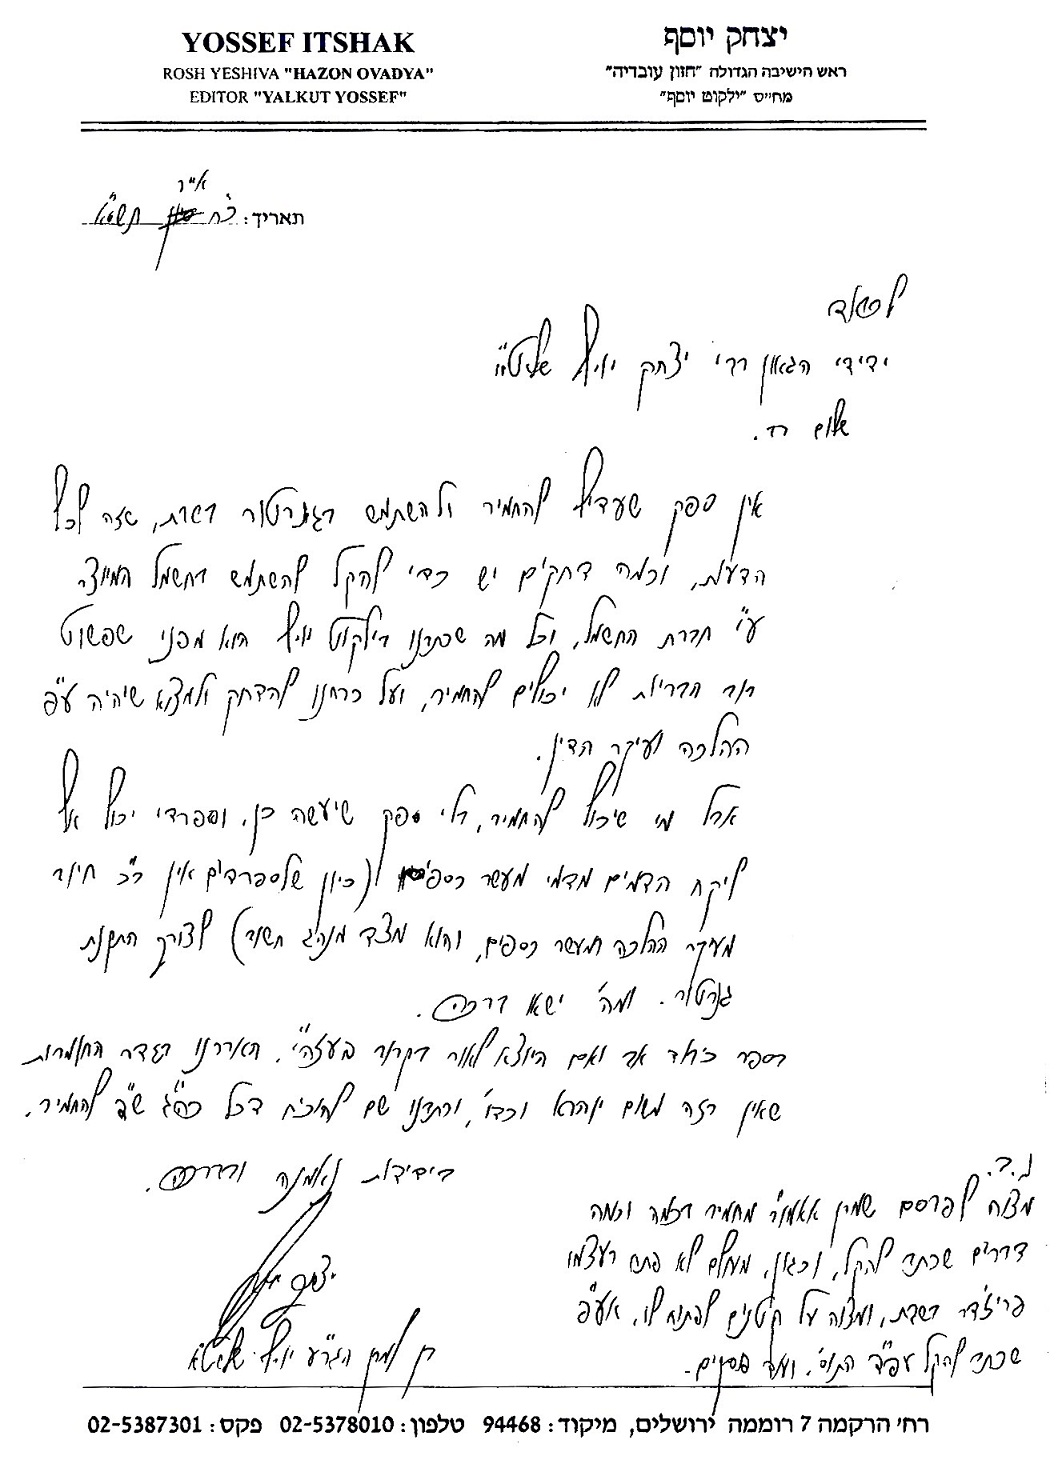 YOSSEF ITSHAK
ROSH YESHIVA "HAZON OVADYA"
EDITOR "YALKUT YOSSEF"
יצחק יוסף
ראש הישיבה הגדולה "חזון עובדיה"
מח״ס "ילקוט יוסף"
תאריך: כ״ח אייר תשס״א
לכבוד
ידידי הגאון רבי יצחק יוסף שליט״א
שלום רב.
אין ספק שעדיף להחמיר ולהשתמש בגנרטור בשבת, שזה לכל
הדעות, וכמה דחקים יש כדי להקל להשתמש בחשמל המיוצר
ע״י חברת החשמל, וכל מה שכתבנו בילקוט יוסף הוא מפני שפשוט
רוב הבריות לא יכולים להחמיר, ועל כרחנו להדחק ולמצוא שיהיה ע״פ
ההלכה ועיקר הדין.
אבל מי שיכול להחמיר, בלי ספק שיעשה כן, וספרדי יכול אף
ליקח הדמים מדמי מעשר כספים (כיון שלספרדים אין כ״כ חיוב
מעיקר ההלכה במעשר כספים, והוא מצד מנהג חשוב) לצורך התקנת
גנרטור. ומה׳ ישא ברכה.
בספר כיבוד אב ואם היוצא לאור בקרוב בעזה״י, הארכנו בגדר החומרות
שאין בזה משום יוהרא וכדו׳, ורצינו שם להוכיח דכל כה״ג ש״פ להחמיר.
בידידות נאמנה ובברכה.
יצחק יוסף
בן למרן הגר״ע יוסף שליט״א
נ.ב.
מצוה לפרסם שמרן אאמו״ר מחמיר בכמה וכמה
דברים שכתב להקל, וכגון, מעולם לא פתח בעצמו
פריז׳דר בשבת, ומצוה על קטנים לפתוח לו, אע״פ
שכתב להקל עפ״ד התוס׳, ועוד פוסקים.
רח׳ הרקמה 7 רוממה ירושלים, מיקוד: 94468 טלפון: 02-5378010 פקס: 02-5387301